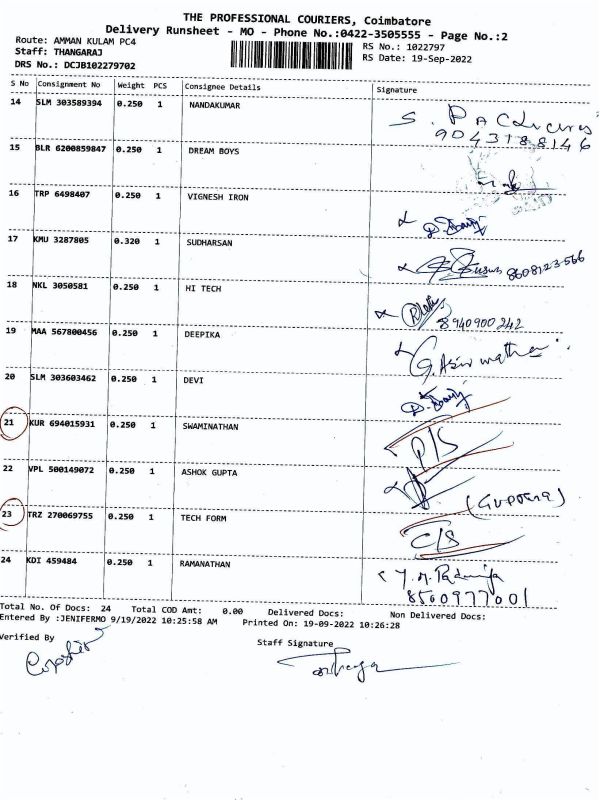 THE PROFESSIONAL COURIERS, Coimbatore
Delivery Runsheet - MO - Phone No.:0422-3505555 - Page No.:2
Route: AMMAN KULAM PC4
RS No.: 1022797
Staff: THANGARAJ
RS Date: 19-Sep-2022
DRS No.: DCJB102279702
S No Consignment No Weight PCS Consignee Details Signature
14 SLM 303589394 0.250 1 NANDAKUMAR
9043188146
15 BLR 6200859847 0.250 1 DREAM BOYS
16 TRP 6498407 0.250 1 VIGNESH IRON
17 KMU 3287805 0.320 1 SUDHARSAN
8608123566
18 NKL 3050581 0.250 1 HI TECH
8940900242
19 MAA 567800456 0.250 1 DEEPIKA
20 SLM 303603462 0.250 1 DEVI
21 KUR 694015931 0.250 1 SWAMINATHAN
P/S
22 VPL 500149072 0.250 1 ASHOK GUPTA
23 TRZ 270069755 0.250 1 TECH FORM
C/S
24 KDI 459484 0.250 1 RAMANATHAN
8500977001
Total No. Of Docs: 24 Total COD Amt: 0.00 Delivered Docs: Non Delivered Docs:
Entered By :JENIFERMO 9/19/2022 10:25:58 AM Printed On: 19-09-2022 10:26:28
Verified By
Staff Signature